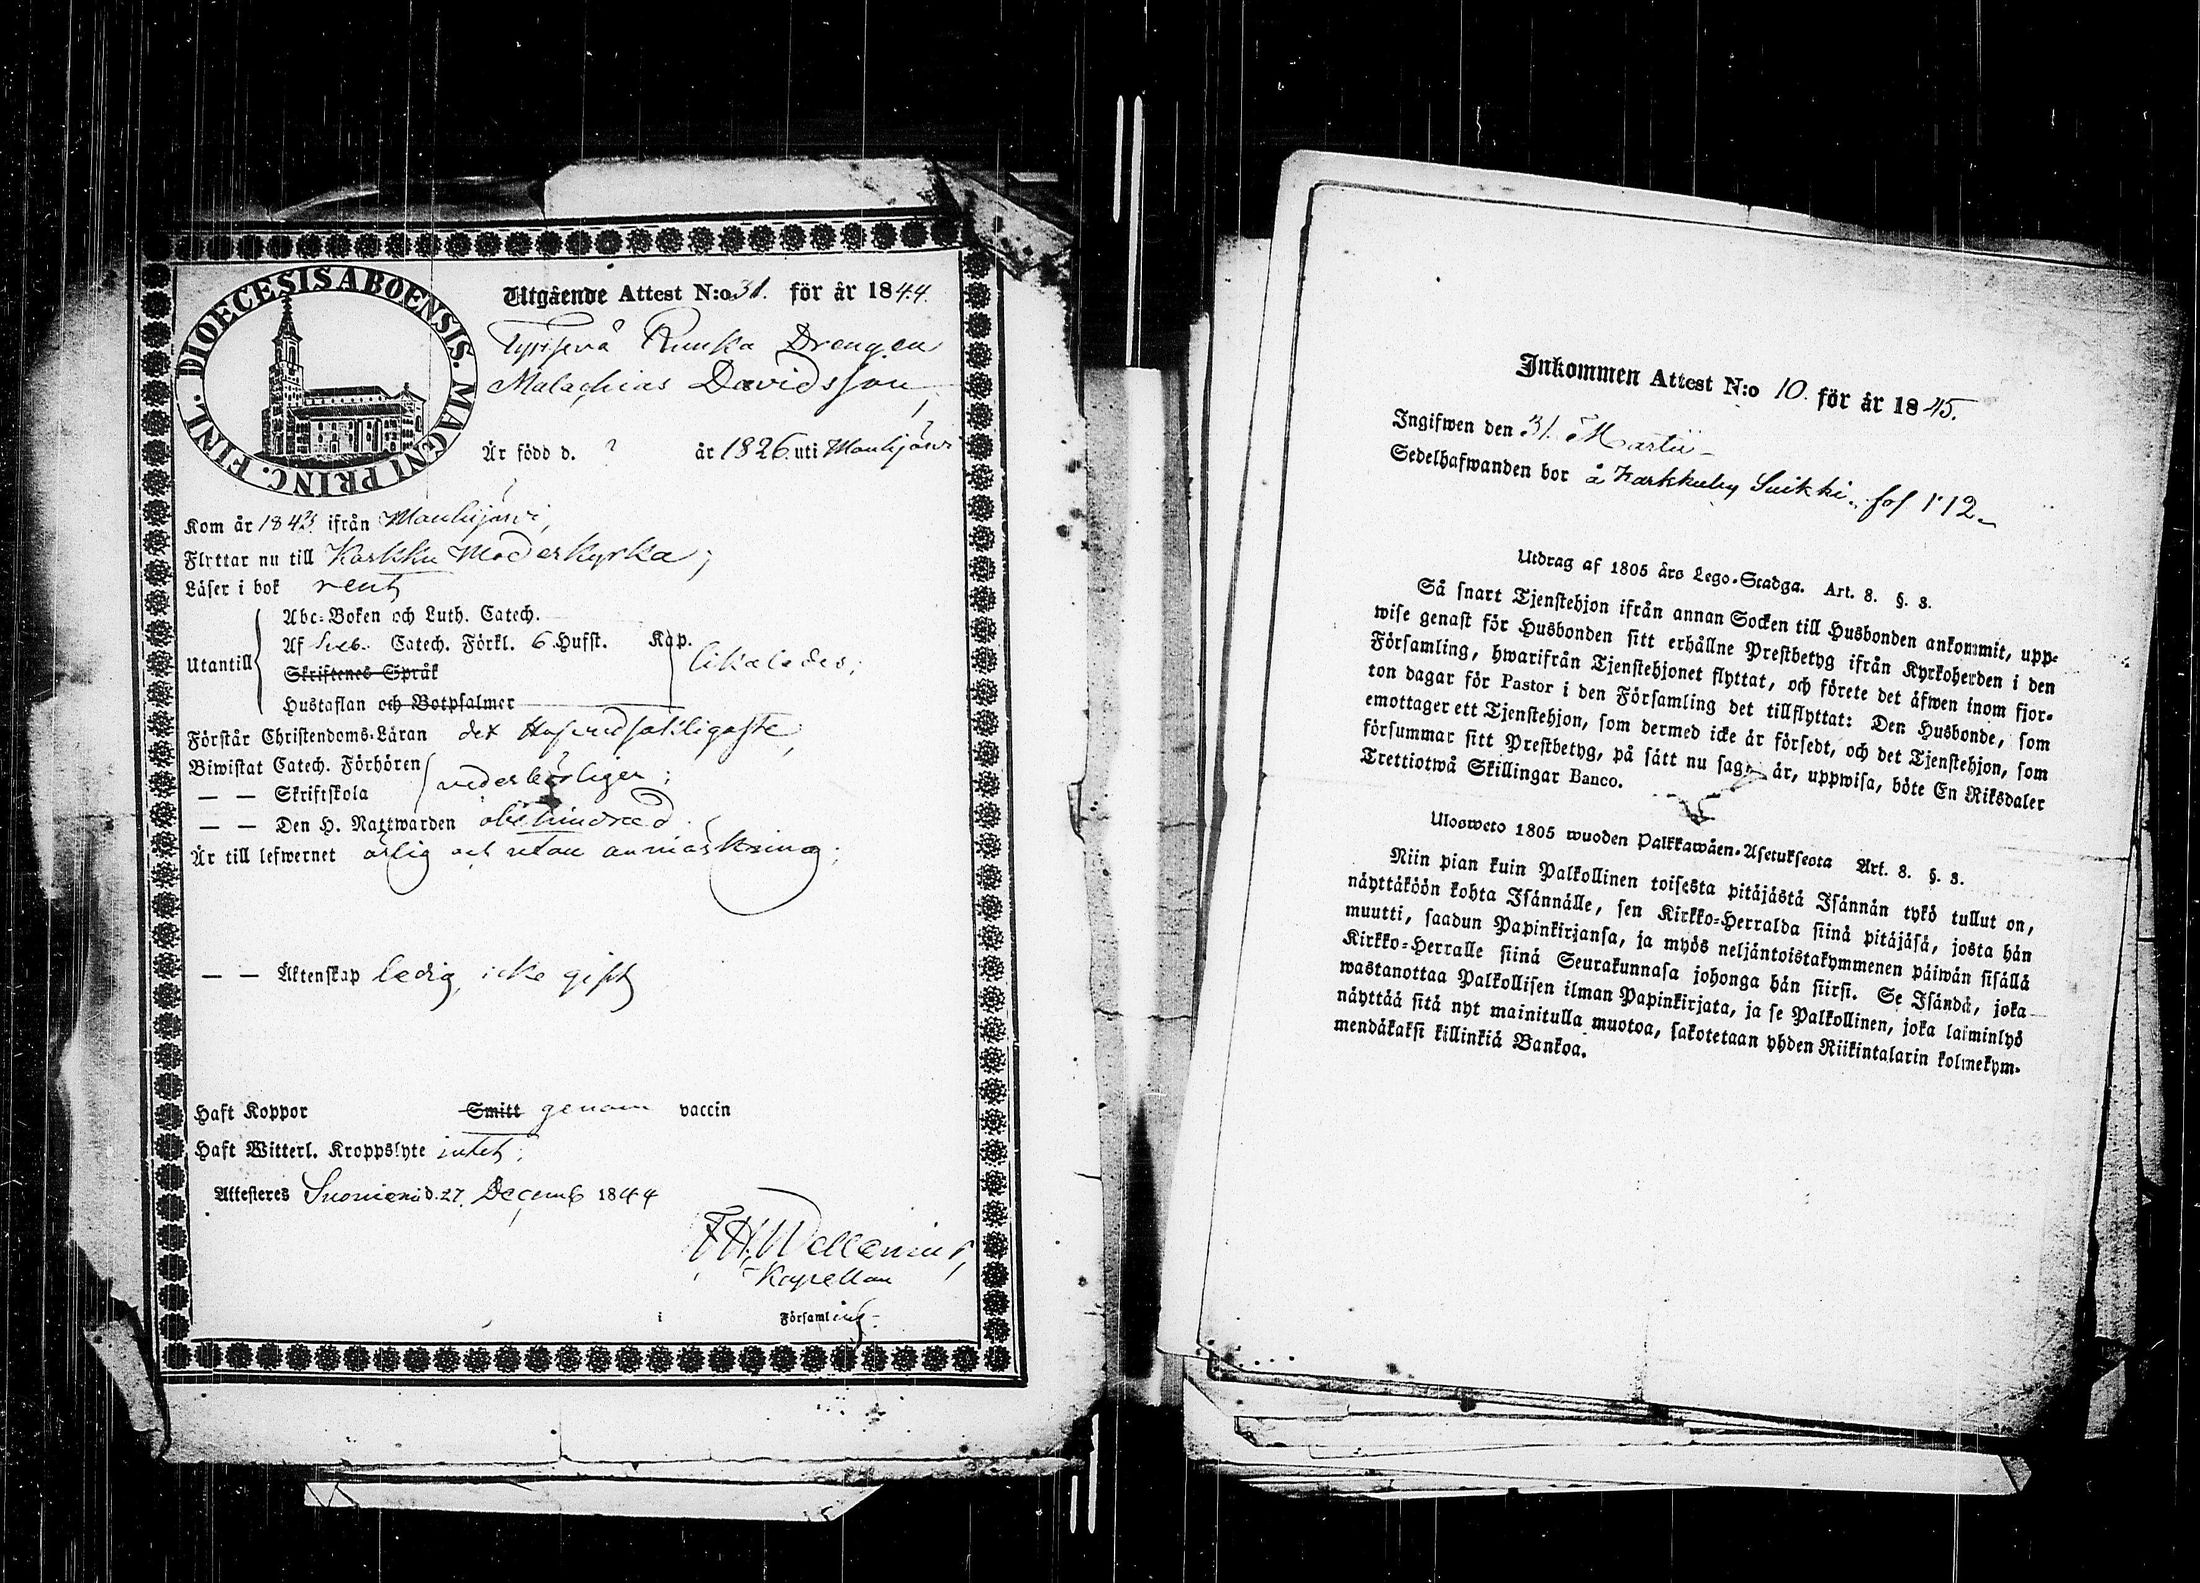 DIOECESIS ABOENSIS. MAGNI PRINC. FINL.
Utgående Attest N:o 31. för år 1844.
Drengen
Malachias Davidsson
Är född d. ? år 1826 uti Mouhijärvi
Kom år 1843 ifrån Mouhijärvi,
Flyttar nu till Karkku Moderkyrka;
Läser i bok rent
Utantill
Abc-Boken och Luth. Catech.
Af Sveb. Catech. Förkl. 6 Hufst. Kap.
Skriftenes Språk
likaledes;
Hustaflan och Botpsalmer
Förstår Christendoms-Läran det Hufvudsakligaste,
Biwistat Catech. Förhören
— — Skriftskola
vederbörligen;
— — Den H. Nattwarden obehindrad
Är till lefwernet ärlig och utan anmärkning;
— — Äktenskap ledig, icke gift
Haft Koppor Smitt genom vaccin
Haft Witterl. Kroppslyte intet;
Attesteres Suoniemi d. 27 Decemb 1844
F H Wellenius,
Kapellan
i Församling.
Inkommen Attest N:o 10. för år 1845.
Ingifwen den 31. Martii
Sedelhafwanden bor å Karkkuby Suikki. fol 112
Utdrag af 1805 års Lego-Stadga. Art. 8. §. 3.
Så snart Tjenstehjon ifrån annan Socken till Husbonden ankommit, upp-
wise genast för Husbonden sitt erhållne Prestbetyg ifrån Kyrkoherden i den
Församling, hwarifrån Tjenstehjonet flyttat, och förete det äfwen inom fjor-
ton dagar för Pastor i den Församling det tillflyttat: Den Husbonde, som
emottager ett Tjenstehjon, som dermed icke är försedt, och det Tjenstehjon, som
försummar sitt Prestbetyg, på sätt nu sagt är, uppwisa, böte En Riksdaler
Trettiotwå Skillingar Banco.
Ulosweto 1805 wuoden Palkkawäen-Asetuksesta Art. 8. §. 3.
Niin pian kuin Palkollinen toisesta pitäjästä Isännän tykö tullut on,
näyttäköön kohta Isännälle, sen Kirkko-Herralda siinä pitäjäsä, josta hän
muutti, saadun Papinkirjansa, ja myös neljäntoistakymmenen päiwän sisällä
Kirkko-Herralle siinä Seurakunnasa johonga hän siirsi. Se Isändä, joka
wastanottaa Palkollisen ilman Papinkirjata, ja se Palkollinen, joka laiminlyö
näyttää sitä nyt mainitulla muotoa, sakotetaan yhden Riikintalarin kolmekym-
mendäkaksi killinkiä Bankoa.